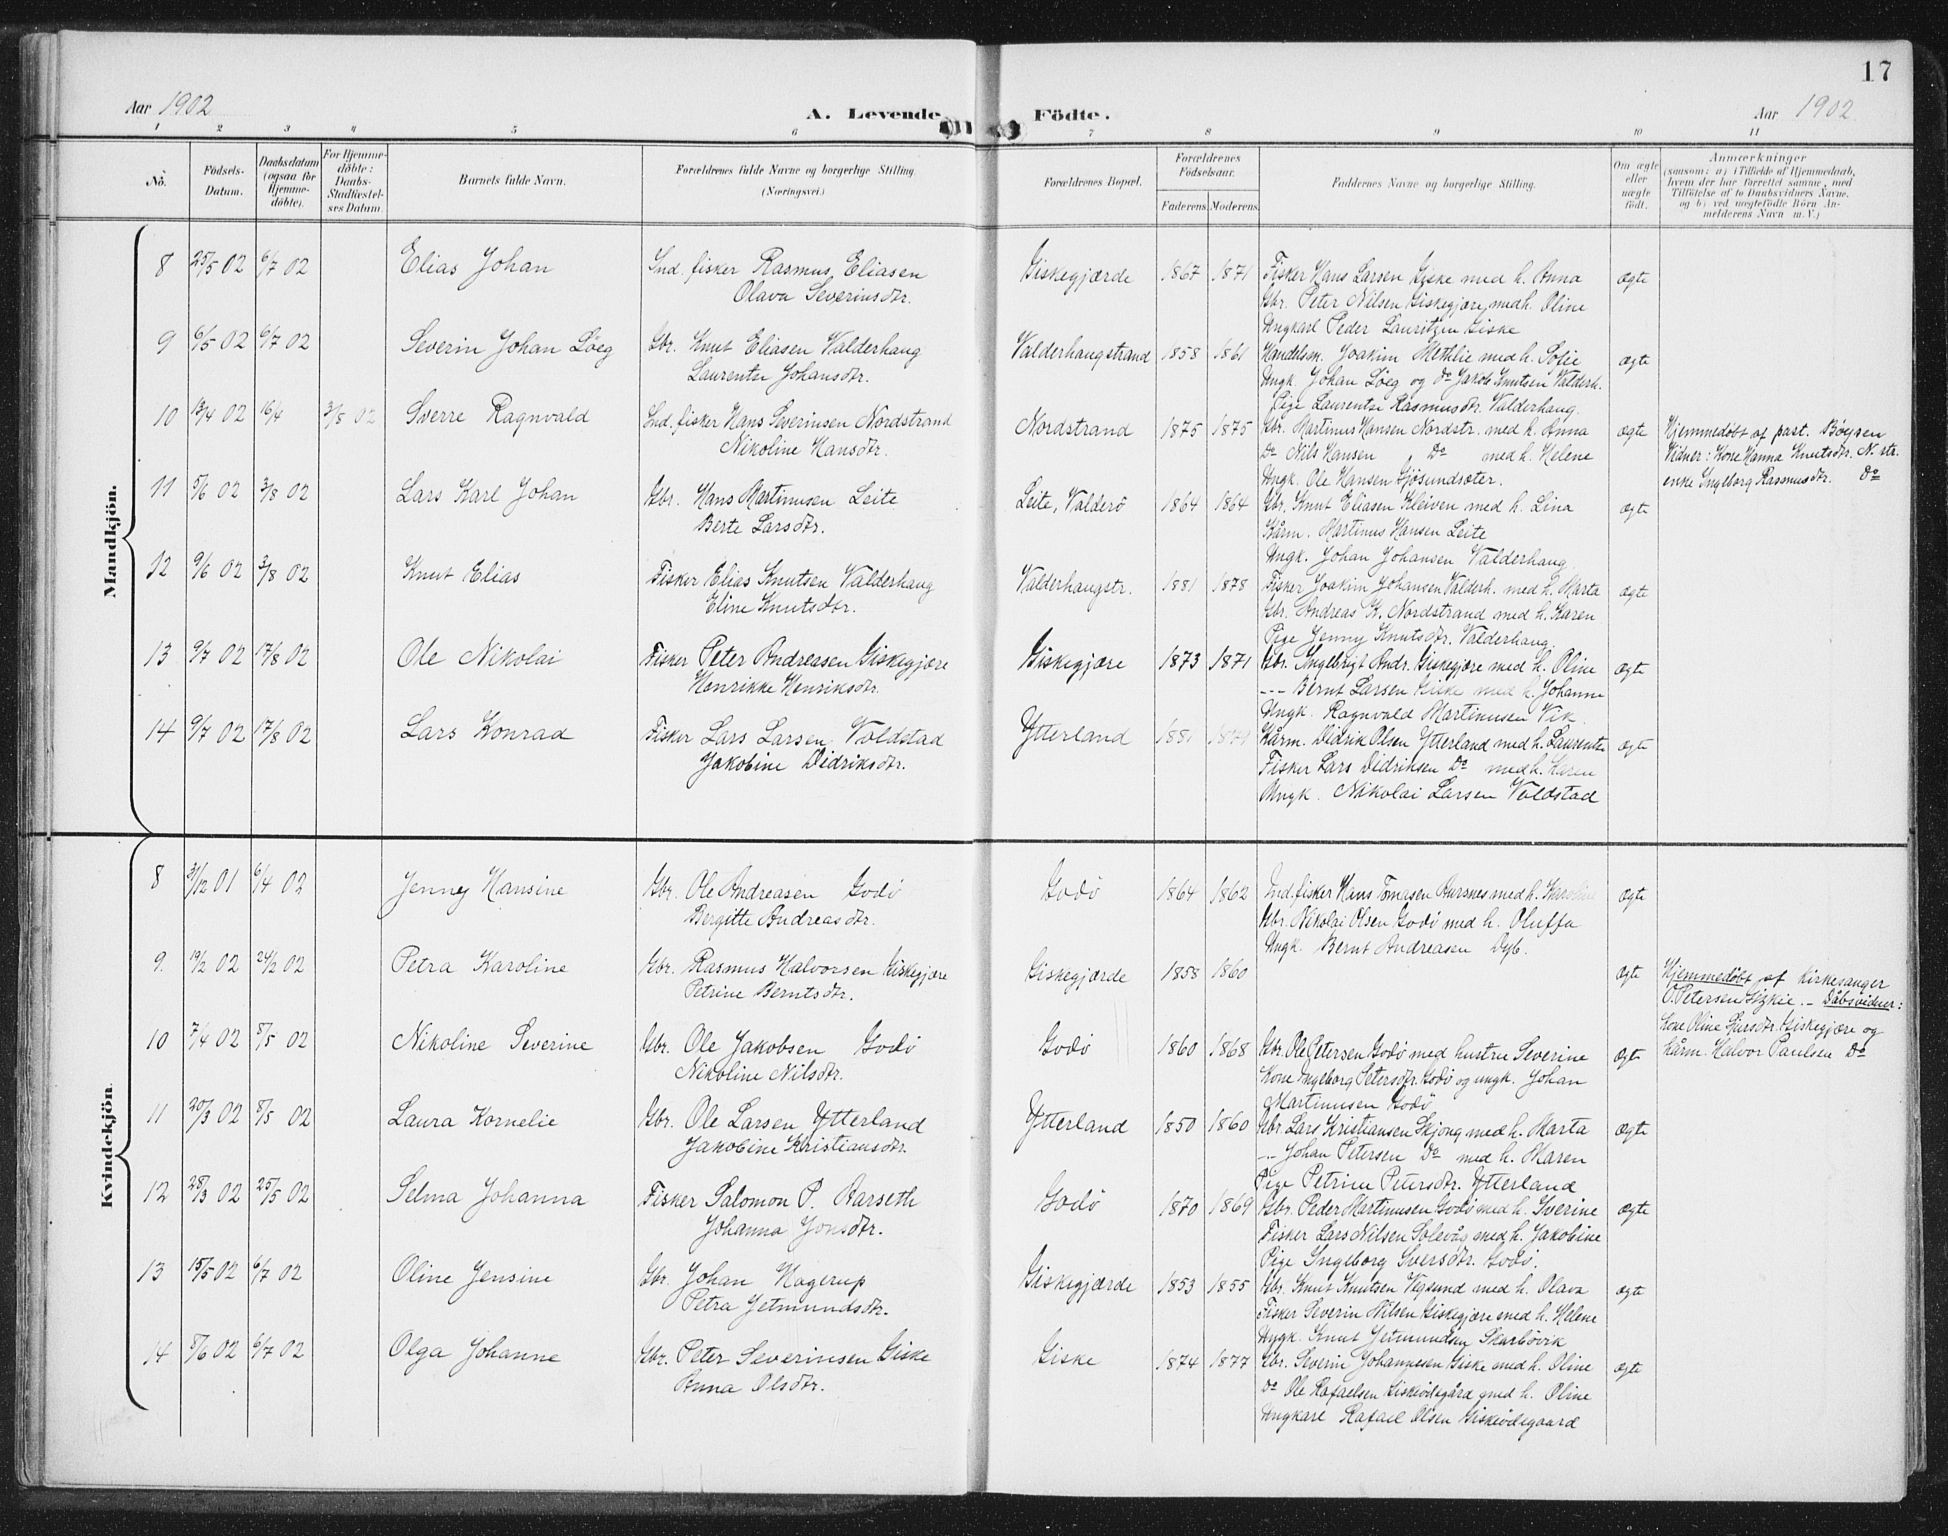 17
Aar 1902 A. Levende Födte. Aar 1902
1 2 3 4 5 6 7 8 9 10 11
No. Födsels-Datum. Daabsdatum (ogsaa for Hjemme-döbte). For Hjemme-döbte: Daabs-Stadfæstel-ses Datum. Barnets fulde Navn. Forældrenes fulde Navne og borgerlige Stilling (Næringsvei.) Forældrenes Bopæl. Forældrenes Födselsaar. Faderens Moderens Faddernes Navne og borgerlige Stilling. Om ægte eller uægte födt. Anmærkninger (saasom: a) i Tilfælde af Hjemmedaab, hvem der har forrettet samme, med Tilföielse af to Daabsvidners Navne. og b) ved uægtefödte Börn An-melderens Navn m. V.)
Mandkjön.
8 25/5 02 6/7 02 Elias Johan Ind. fisker Rasmus Eliasen Giskegjærde 1867 1871 Fisker Hans Larsen Giske med h. Anna ægte
Olava Severinsdtr. Gbr. Peter Nilsen Giskegjære, med h. Oline
Ungkarl Peder Lauritzen Giske
9 6/5 02 6/7 02 Severin Johan Löeg Gbr. Knut Eliasen Valderhaug Valderhaugstrand 1858 1861 Handelsm. Joakim Methlie med h. Sofie ægte
Laurentse Johansdtr. Ungk. Johan Löeg og Do Jakob Knutsen Valderh.
Pige Laurentse Rasmusdtr. Valderhaug.
10 13/4 02 16/4 3/8 02 Sverre Ragnvald Ind. fisker Hans Severinsen Nordstrand Nordstrand 1875 1875 Gbr. Martinus Hansen Nordstr. med h. Anna ægte Hjemmedöbt af past. Böysen
Nikoline Hansdtr. Do Nils Hansen Do med h. Helene Vidner: Kone Hanna Knutsdtr. N. str.
Ungk. Ole Hansen Gjösundsæter. enke Ingeborg Rasmusdtr. Do
11 5/6 02 3/8 02 Lars Karl Johan Gbr. Hans Martinusen Leite Leite, Valderö 1864 1864 Gbr. Knut Eliasen Kleiven med h. Lina ægte
Berte Larsdtr. Kårm. Martinus Hansen Leite
Ungk. Johan Johansen Valderhaug
12 9/6 02 3/8 02 Knut Elias Fisker Elias Knutsen Valderhaug Valderhaugstr. 1881 1878 Fisker Joakim Johansen Valderh. med h. Marta ægte
Eline Knutsdtr. Gbr. Andreas K. Nordstrand med h. Karen
Pige Jenny Knutsdtr. Valderhaug
13 9/7 02 17/8 02 Ole Nikolai Fisker Peter Andreasen Giskegjære Giskegjære 1873 1871 Gbr. Ingebrigt Andr. Giskegjære med h. Oline ægte
Henrikke Henriksdtr. --- Bernt Larsen Giske med h. Johanne
Ungk. Ragnvald Martinusen Vik.
14 9/7 02 17/8 02 Lars Konrad Fisker Lars Larsen Valdstad Ytterland 1881 Kårm. Didrik Olsen Ytterland med h. Laurentse ægte
Jakobine Didriksdtr. Fisker Lars Didriksen Do med h. Karen
Ungk. Nikolai Larsen Voldstad
Kvindekjön.
8 31/12 01 6/4 02 Jenny Hansine Gbr. Ole Andreasen Godö Godö 1864 1862 Ind. fisker Hans Tomasen Aursnes med h. Karoline ægte
Bergitte Andreasdtr. Gbr. Nikolai Olsen Godö med h. Oluffa
Ungk. Bernt Andreasen Dyb.
9. 19/2 02 24/2 02 Petra Karoline Gbr. Rasmus Halvorsen Giskegjære Giskegjærde 1858 1860 ægte Hjemmedöbt af kirkesanger
Petrine Berntsdtr. O. Petersen Gizkie. – Dåbsvidner:
kone Oline Sjursdtr. Giskegjære og
10 7/4 02 8/5 02 Nikoline Severine Gbr. Ole Jakobsen Godö Godö 1860 1868 Gbr. Ole Petersen Godö med hustru Severine ægte kårm. Halvor Paulsen Do
Nikoline Nilsdtr. Kone Ingeborg Petersdtr. Godö og ungk. Johan
Martinusen Godö
11 20/3 02 8/5 02 Laura Kornelie Gbr. Ole Larsen Ytterland Ytterland 1850 1860 Gbr Lars Kristiansen Skjong med h. Marta ægte
Jakobine Kristiansdtr. -- Johan Petersen Do med h. Maren
Pige Petrine Petersdtr. Ytterland
12 28/3 02 25/5 02 Selma Johanna Fisker Salomon P. Aarseth Godö 1870 1869 Gbr. Peder Martinusen Godö med h. Sverine ægte
Johanna Jonsdtr. Fisker Lars Nilsen Solevåg med h. Jakobine
Pige Ingeborg Sversdtr. Godö.
13 15/5 02 6/7 02 Oline Jensine Gbr. Johan Hagerup Giskegjærde 1853 1855 Gbr. Knut Knutsen Vegsund med h. Olava ægte
Petra Jetmundsdtr. Fisker Severin Nilsen Giskegjære med h. Helene
Ungk. Knut Jetmundsen Skarbövik
14 8/6 02 6/7 02 Olga Johanne Gbr. Peter Severinsen Giske Giske 1874 1877 Gbr. Severin Johannesen Giske med h. Oline ægte
Anna Olsdtr. Do Ole Rafaelsen Giskeödegård med h. Oline
Ungkarl Rafael Olsen Giskeödegaard